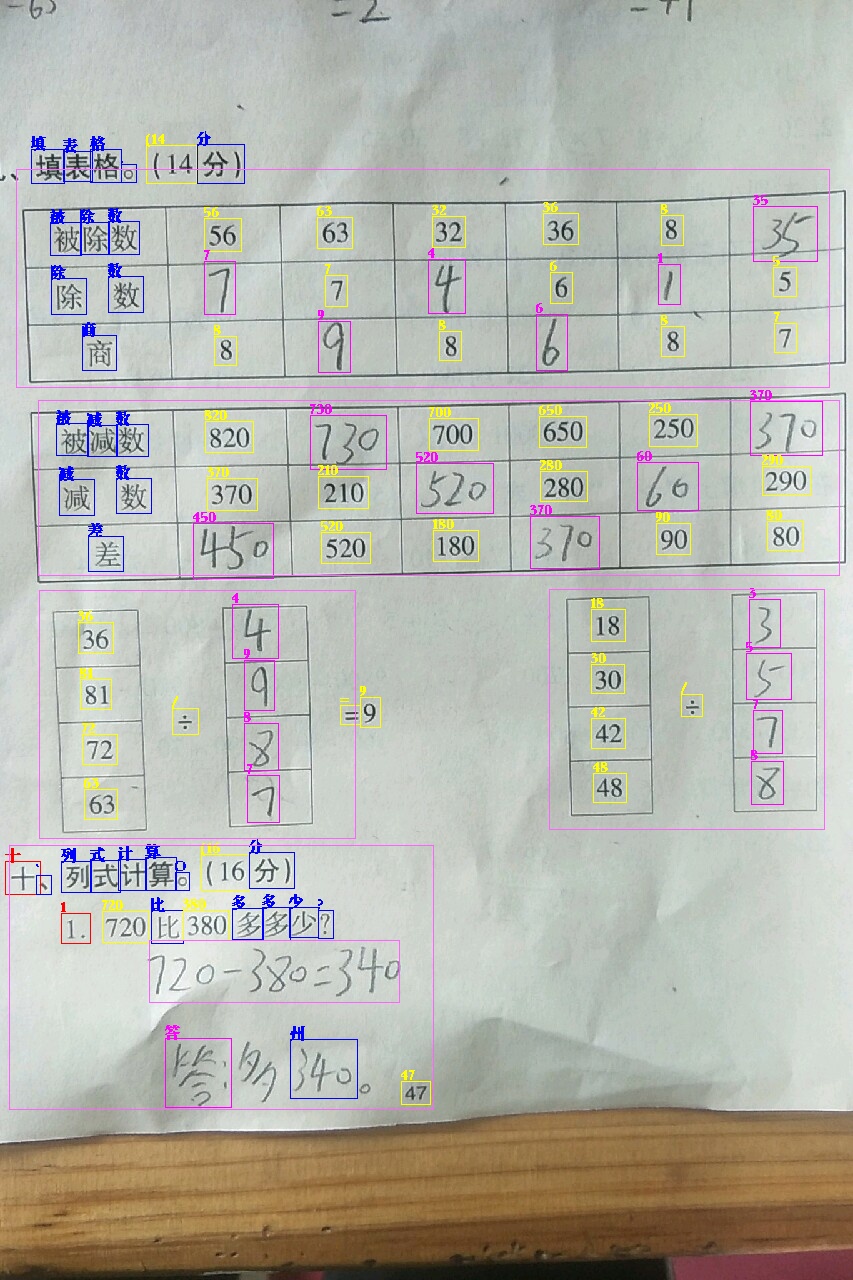 -65 =2 =41
、填表格。(14分)
被除数 56 63 32 36 8 35
除数 7 7 4 6 1 5
商 8 9 8 6 8 7
被减数 820 730 700 650 250 370
减数 370 210 520 280 60 290
差 450 520 180 370 90 80
36 4 18 3
81 9 30 5
÷ =9 ÷
72 8 42 7
63 7 48 8
十、列式计算。(16分)
1. 720比380多多少?
720-380=340
答:多340。
47